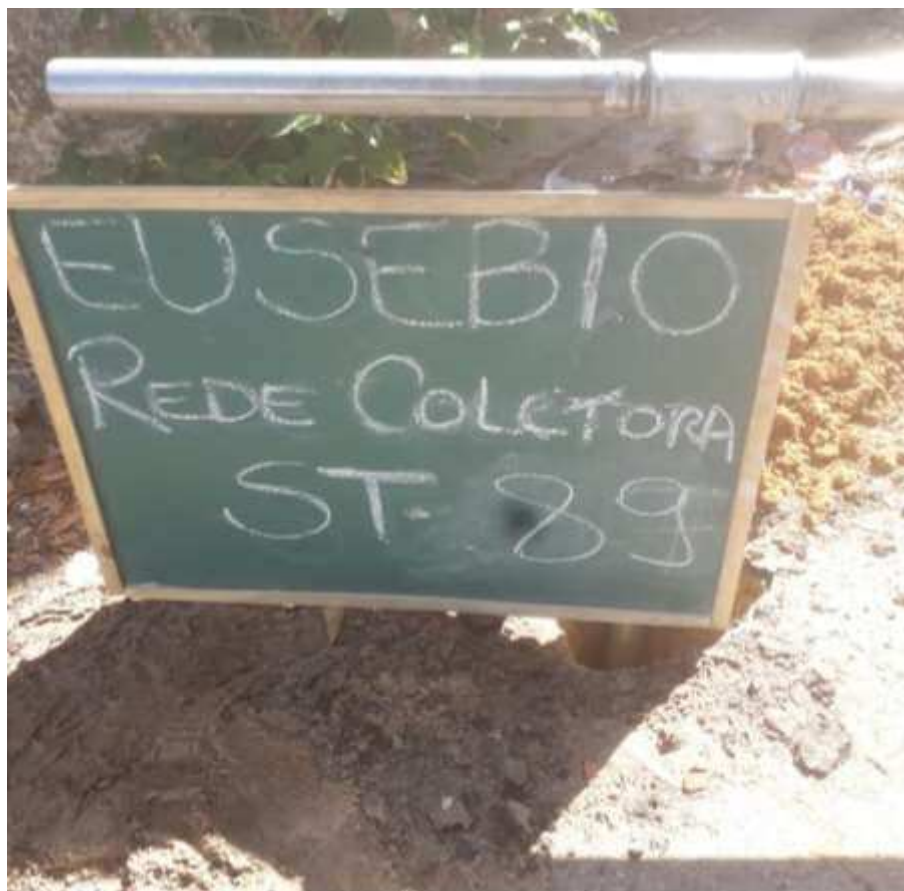 EUSEBIO
REDE COLETORA
ST-89